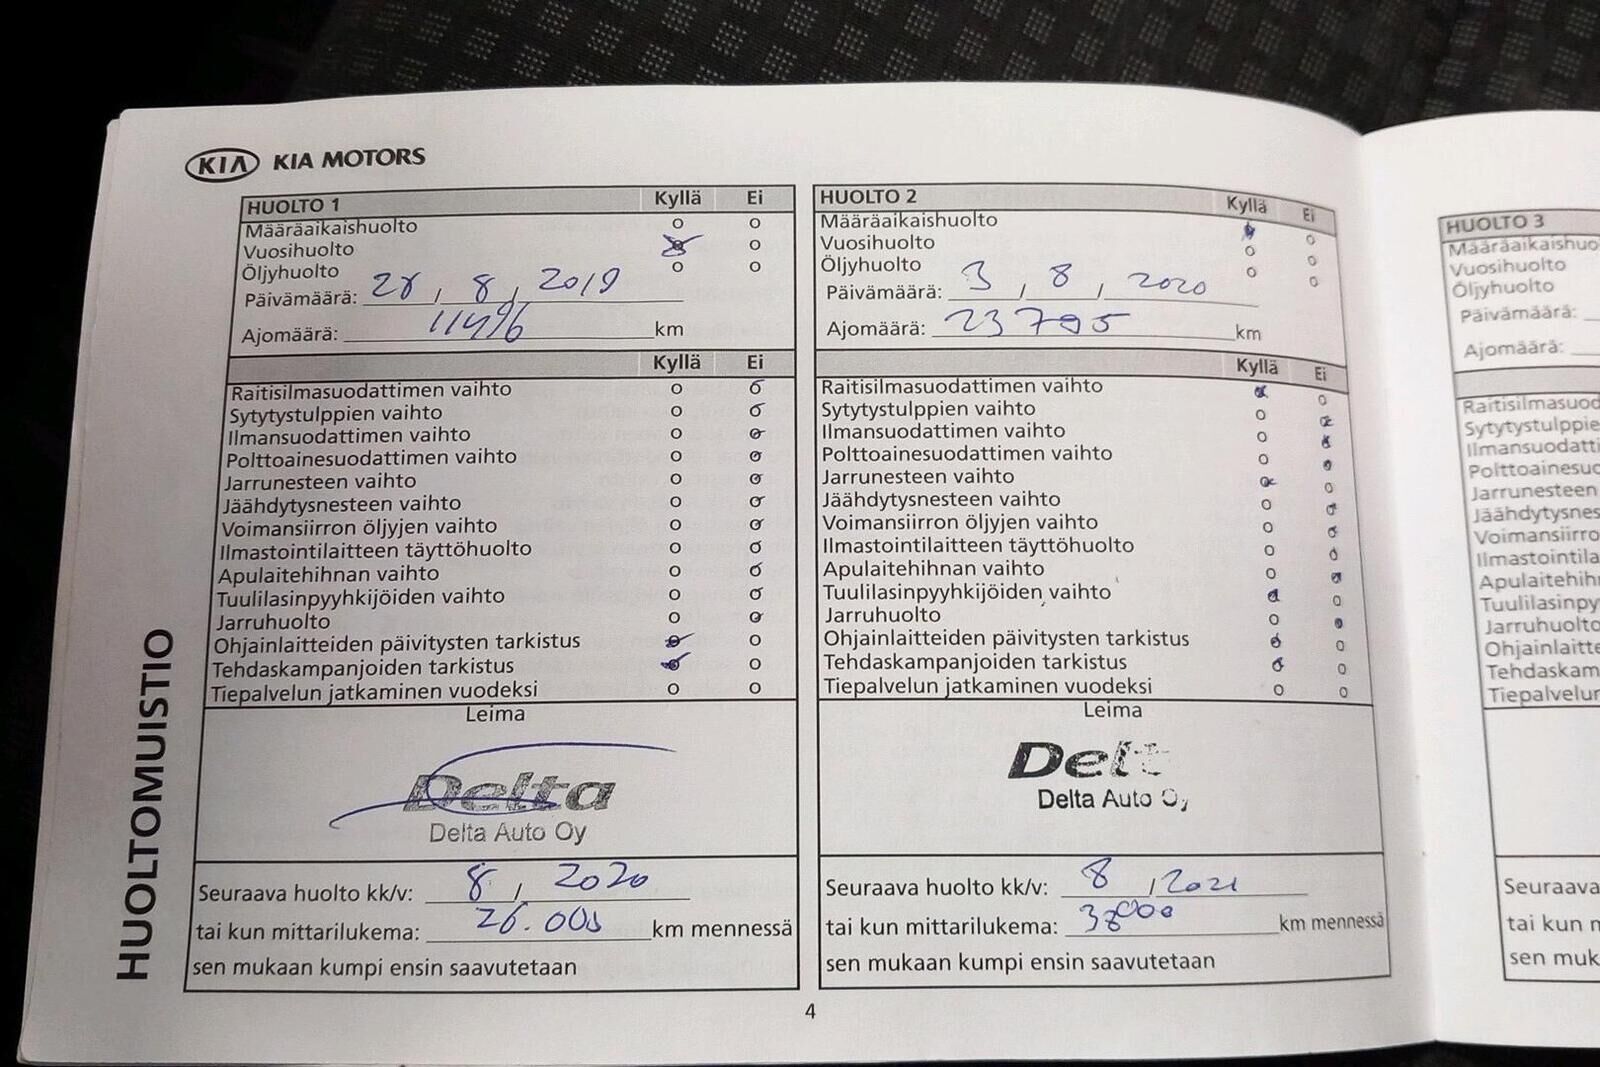 KIA KIA MOTORS
HUOLTOMUISTIO
HUOLTO 1 Kyllä Ei
Määräaikaishuolto
Vuosihuolto
Öljyhuolto
Päivämäärä: 28, 8, 2019
Ajomäärä: 11496 km
Kyllä Ei
Raitisilmasuodattimen vaihto
Sytytystulppien vaihto
Ilmansuodattimen vaihto
Polttoainesuodattimen vaihto
Jarrunesteen vaihto
Jäähdytysnesteen vaihto
Voimansiirron öljyjen vaihto
Ilmastointilaitteen täyttöhuolto
Apulaitehihnan vaihto
Tuulilasinpyyhkijöiden vaihto
Jarruhuolto
Ohjainlaitteiden päivitysten tarkistus
Tehdaskampanjoiden tarkistus
Tiepalvelun jatkaminen vuodeksi
Leima
Delta
Delta Auto Oy
Seuraava huolto kk/v: 8, 2020
tai kun mittarilukema: 26.000 km mennessä
sen mukaan kumpi ensin saavutetaan
HUOLTO 2 Kyllä Ei
Määräaikaishuolto
Vuosihuolto
Öljyhuolto
Päivämäärä: 3, 8, 2020
Ajomäärä: 23795 km
Kyllä Ei
Raitisilmasuodattimen vaihto
Sytytystulppien vaihto
Ilmansuodattimen vaihto
Polttoainesuodattimen vaihto
Jarrunesteen vaihto
Jäähdytysnesteen vaihto
Voimansiirron öljyjen vaihto
Ilmastointilaitteen täyttöhuolto
Apulaitehihnan vaihto
Tuulilasinpyyhkijöiden vaihto
Jarruhuolto
Ohjainlaitteiden päivitysten tarkistus
Tehdaskampanjoiden tarkistus
Tiepalvelun jatkaminen vuodeksi
Leima
Delt
Delta Auto Oy
Seuraava huolto kk/v: 8, 2021
tai kun mittarilukema: 38000 km mennessä
sen mukaan kumpi ensin saavutetaan
4
HUOLTO 3
Määräaikaishuo
Vuosihuolto
Öljyhuolto
Päivämäärä:
Ajomäärä:
Raitisilmasuod
Sytytystulppie
Ilmansuodatti
Polttoainesuo
Jarrunesteen
Jäähdytysnes
Voimansiirro
Ilmastointila
Apulaitehih
Tuulilasinpy
Jarruhuolto
Ohjainlaitte
Tehdaskam
Tiepalvelur
Seuraava
tai kun
sen muk